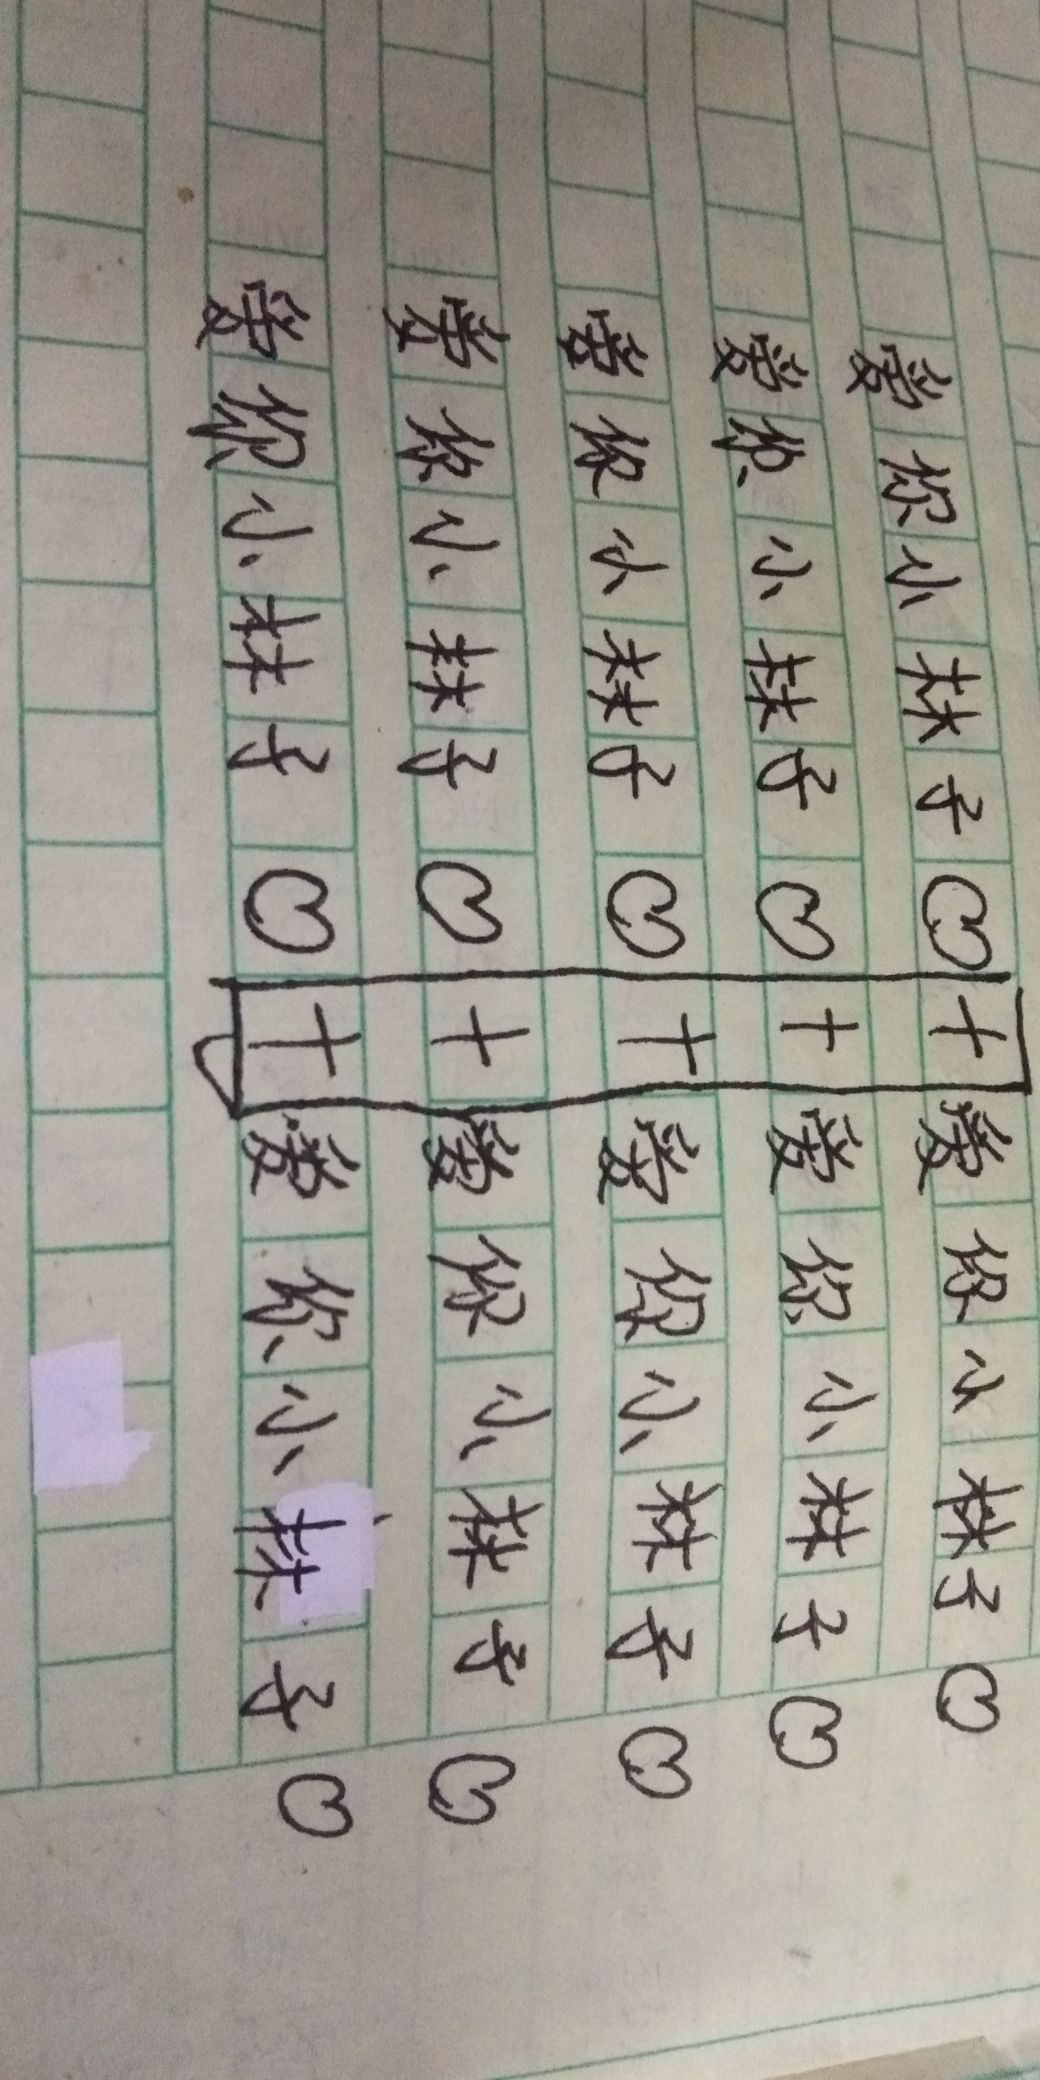 爱你小林子♡+爱你小林子♡
爱你小林子♡+爱你小林子♡
爱你小林子♡+爱你小林子♡
爱你小林子♡+爱你小林子♡
爱你小林子♡+爱你小林子♡